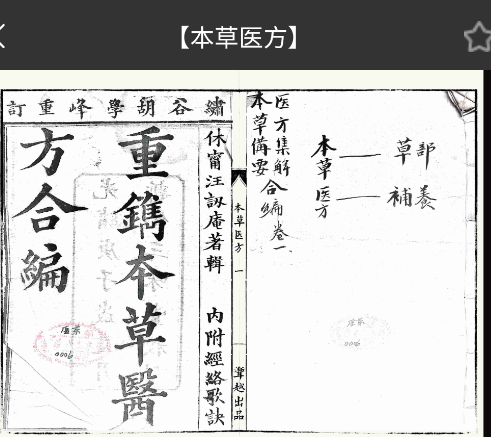 【本草医方】
繡谷胡學峰重訂
休甯汪訒庵著輯 內附經絡歌訣
重鐫本草醫
方合編
本草医方 一
越出品
医方集解
本草備要
合編卷一
本草——草部
医方——補養